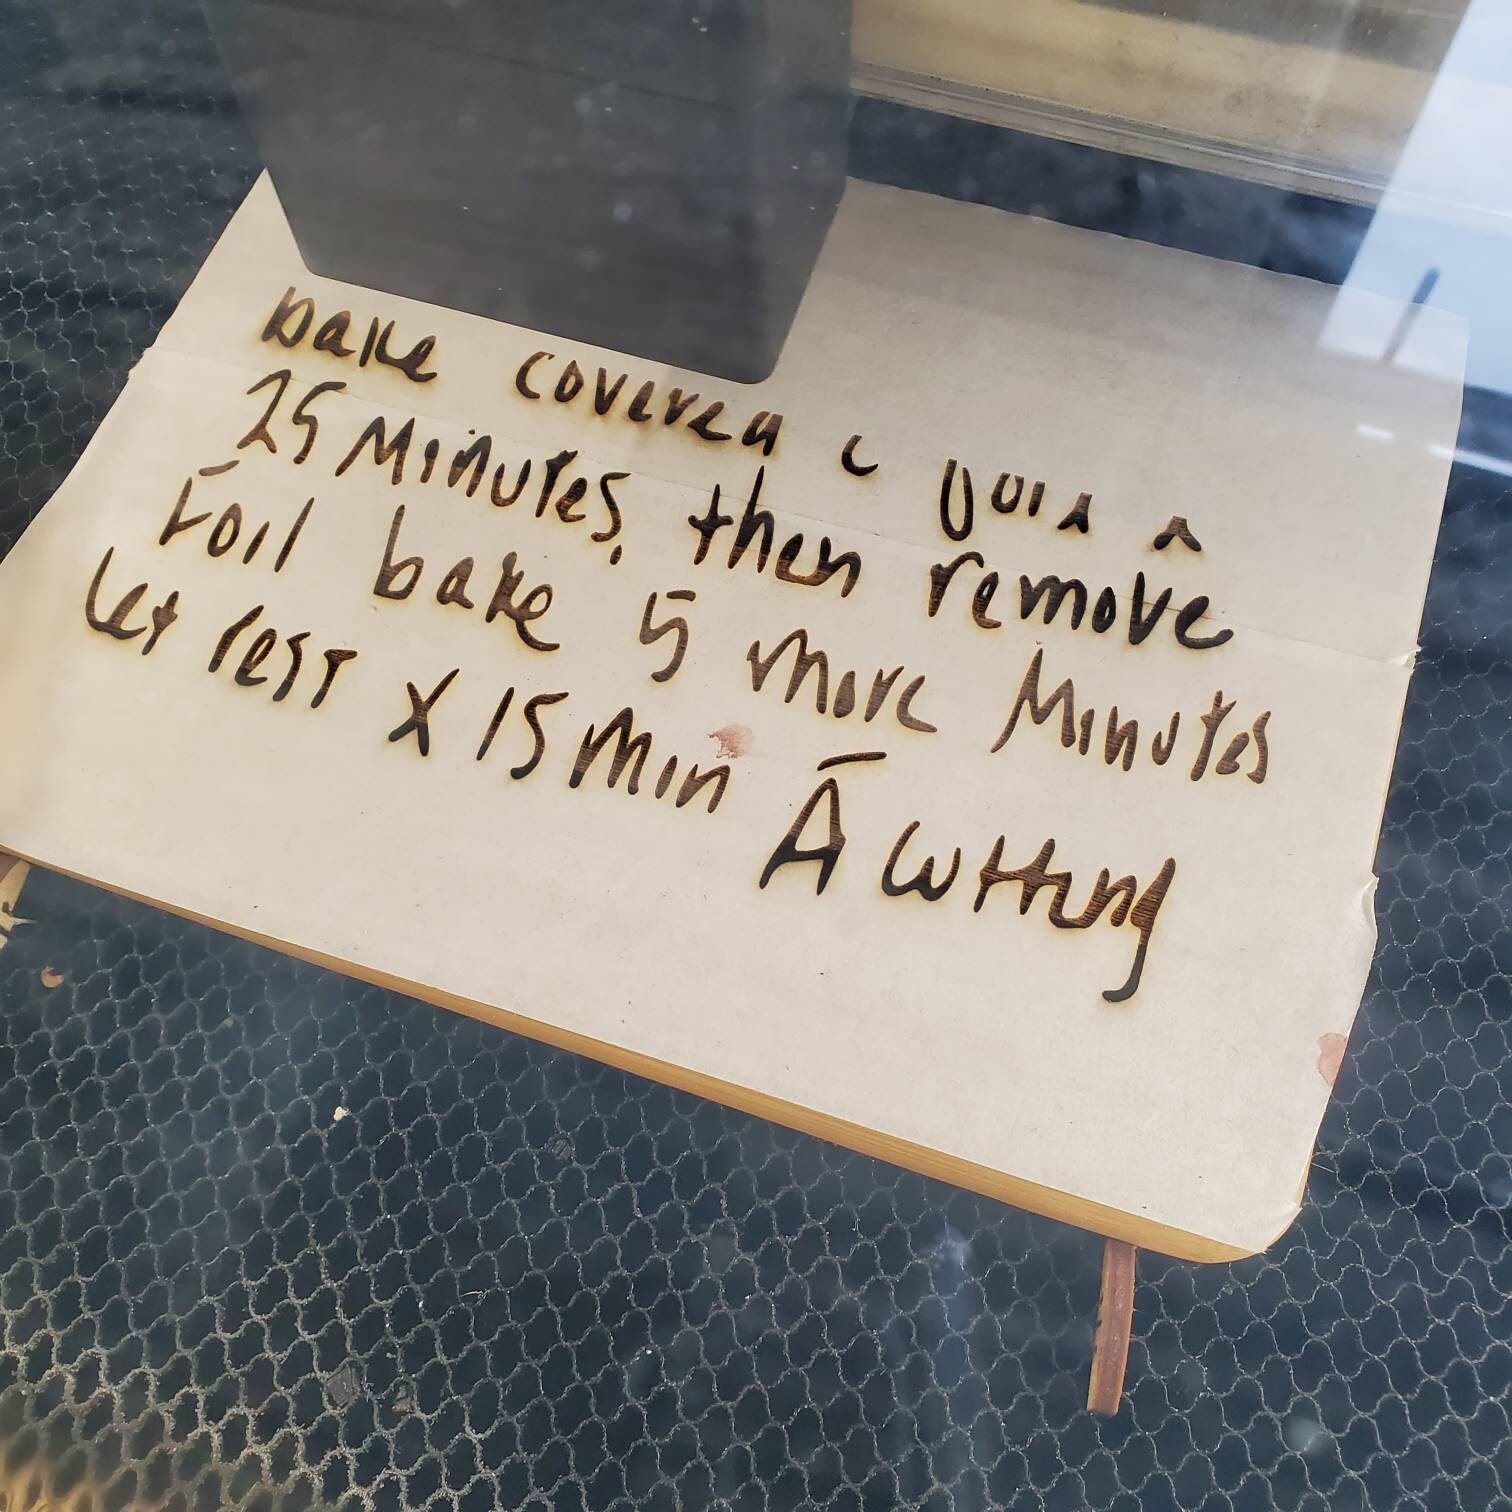 bake covered c
25 Minutes, then remove
Foil bake 5 more Minutes
Let rest x 15 min Ā cutting